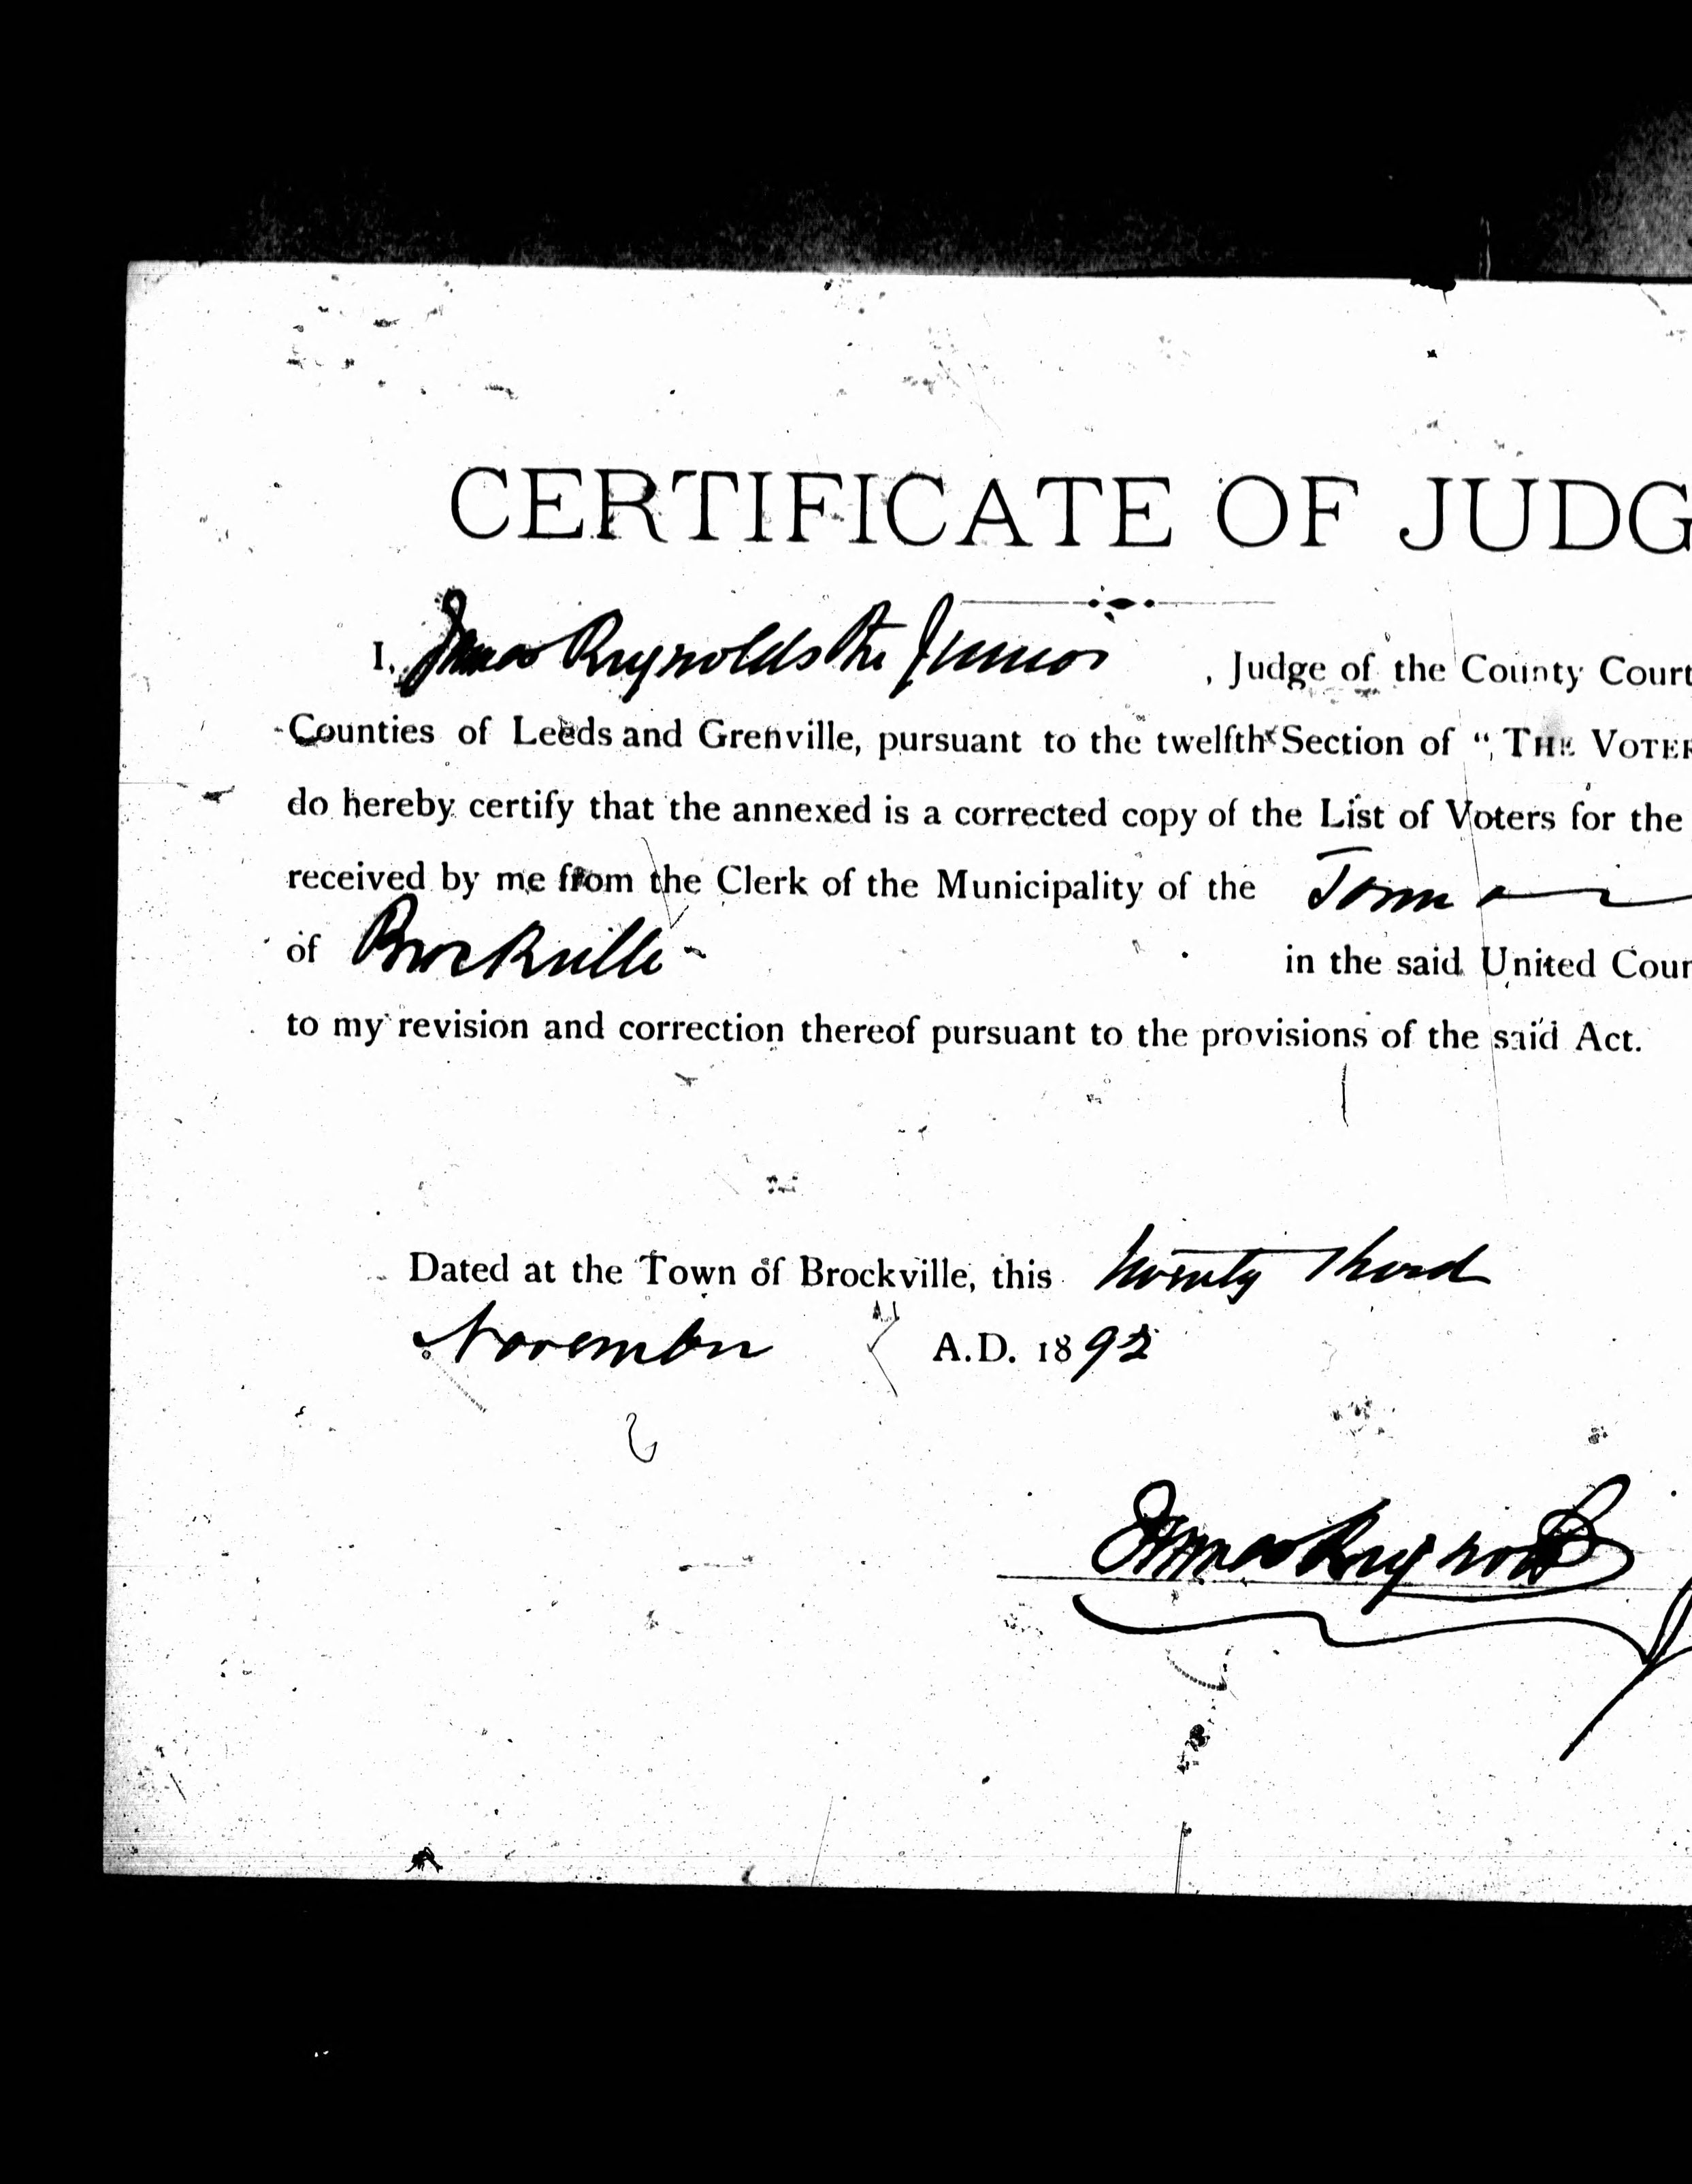 CERTIFICATE OF JUDG
I, James Reynolds the Junior , Judge of the County Court
Counties of Leeds and Grenville, pursuant to the twelfth Section of "THE VOTER
do hereby certify that the annexed is a corrected copy of the List of Voters for the
received by me from the Clerk of the Municipality of the Town
of Brockville - in the said United Coun
to my revision and correction thereof pursuant to the provisions of the said Act.
Dated at the Town of Brockville, this twenty third
November A.D. 1892
James Reynolds